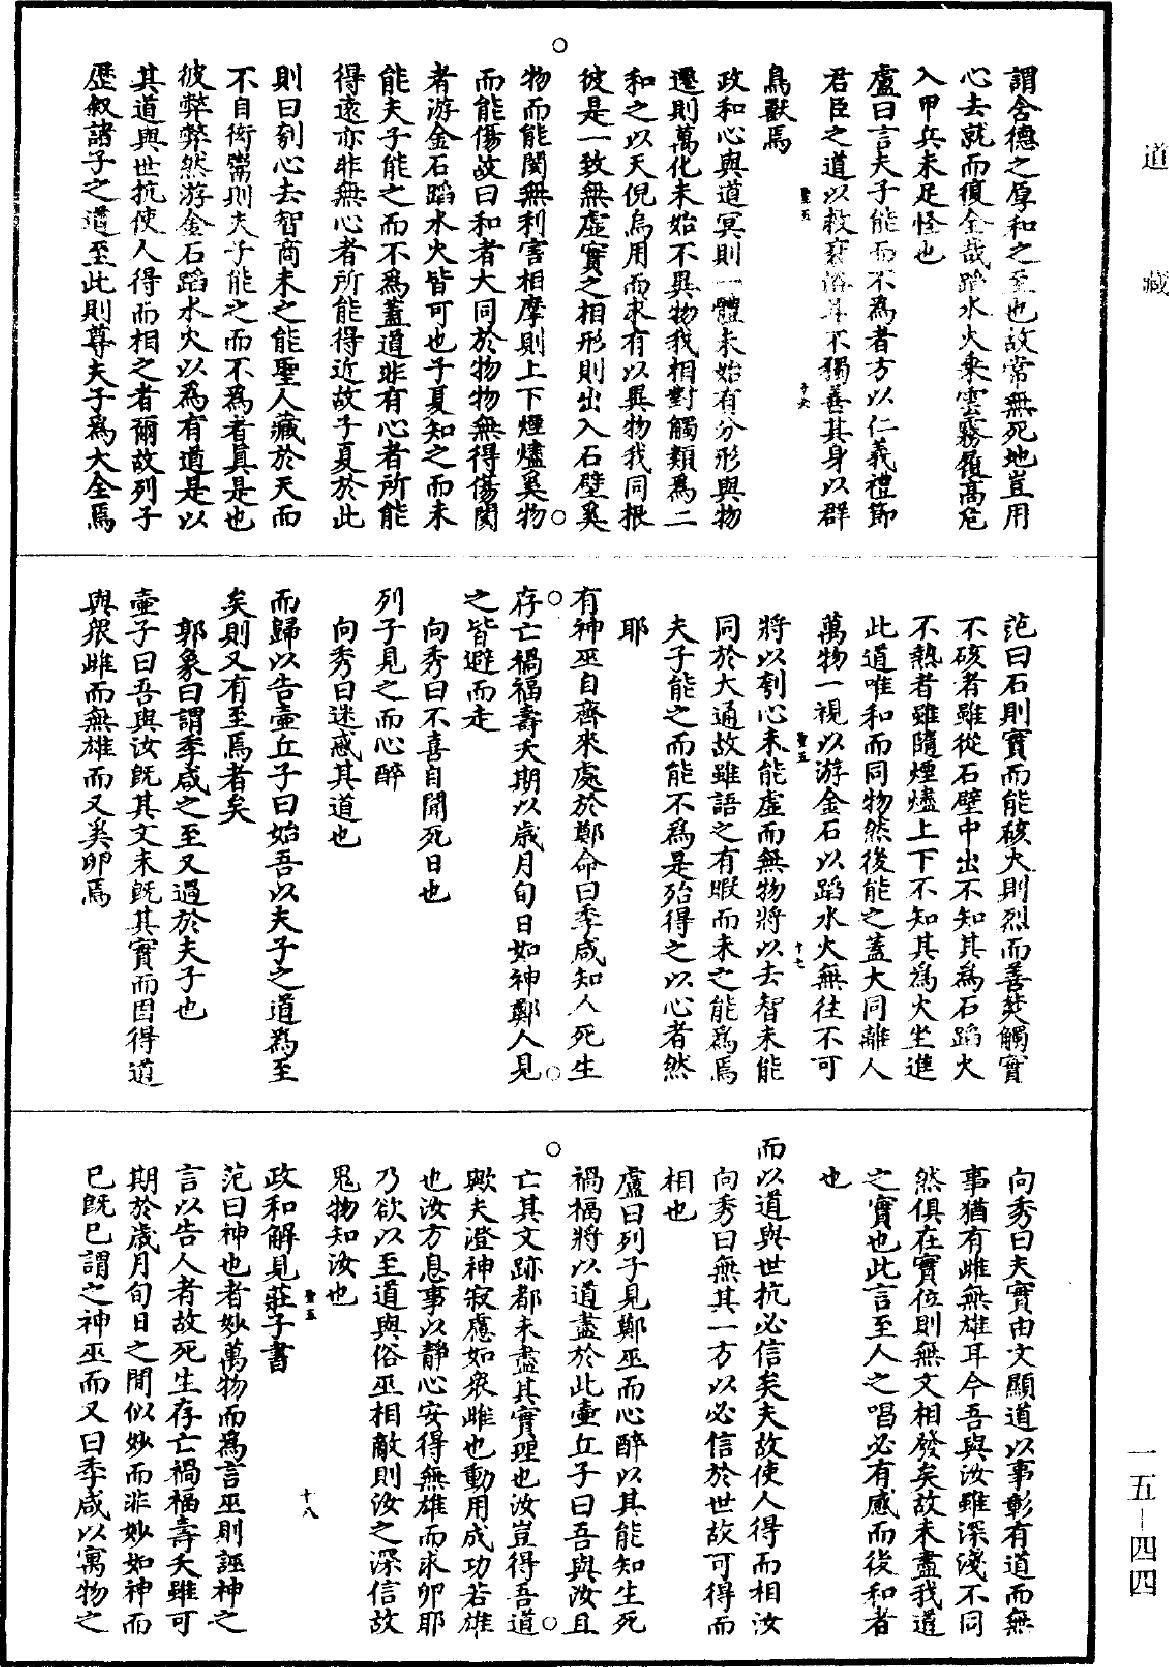 道藏
謂含德之厚和之至也故常無死地豈用
心去就而復全哉蹈水火乘雲霧履高危
入甲兵未足怪也
盧曰言夫子能而不為者方以仁義禮節
君臣之道以救衰俗耳不獨善其身以群
鳥獸焉
政和心與道冥則一體未始有分形與物
遷則萬化未始不異物我相對觸類為二
和之以天倪烏用而求有以異物我同根
彼是一致無虛實之相形則出入石壁奚
物而能閡無利害相摩則上下煙燼奚物
而能傷故曰和者大同於物物無得傷閡
者游金石蹈水火皆可也子夏知之而未
能夫子能之而不為蓋道非有心者所能
得遠亦非無心者所能得近故子夏於此
則曰刳心去智商未之能聖人藏於天而
不自衒鬻則夫子能之而不為者真是也
彼弊弊然游金石蹈水火以為有道是以
其道與世抗使人得而相之者爾故列子
歷叙諸子之道至此則尊夫子為大全焉
范曰石則實而能硋火則烈而善焚觸實
不硋者雖從石壁中出不知其為石蹈火
不熱者雖隨煙燼上下不知其為火坐進
此道唯和而同物然後能之蓋大同離人
萬物一視以游金石以蹈水火無往不可
將以刳心未能虛而無物將以去智未能
同於大通故雖語之有暇而未之能為焉
夫子能之而能不為是殆得之以心者然
耶
有神巫自齊來處於鄭命曰季咸知人死生
存亡禍福壽夭期以歲月旬日如神鄭人見
之皆避而走
向秀曰不喜自聞死日也
列子見之而心醉
向秀曰迷惑其道也
而歸以告壷丘子曰始吾以夫子之道為至
矣則又有至焉者矣
郭象曰謂季咸之至又過於夫子也
壷子曰吾與汝既其文未既其實而固得道
與衆雌而無雄而又奚卵焉
向秀曰夫實由文顯道以事彰有道而無
事猶有雌無雄耳今吾與汝雖深淺不同
然俱在實位則無文相發矣故未盡我道
之實也此言至人之唱必有感而後和者
也
而以道與世抗必信矣夫故使人得而相汝
向秀曰無其一方以必信於世故可得而
相也
盧曰列子見鄭巫而心醉以其能知生死
禍福將以道盡於此壷丘子曰吾與汝且
亡其文跡都未盡其實理也汝豈得吾道
歟夫澄神寂慮如衆雌也動用成功若雄
也汝方息事以靜心安得無雄而求卵耶
乃欲以至道與俗巫相敵則汝之深信故
鬼物知汝也
政和解見莊子書
范曰神也者妙萬物而為言巫則誣神之
言以告人者故死生存亡禍福壽夭雖可
期於歲月旬日之間似妙而非妙如神而
已既已謂之神巫而又曰季咸以寓物之
十七
十八
一五-四四